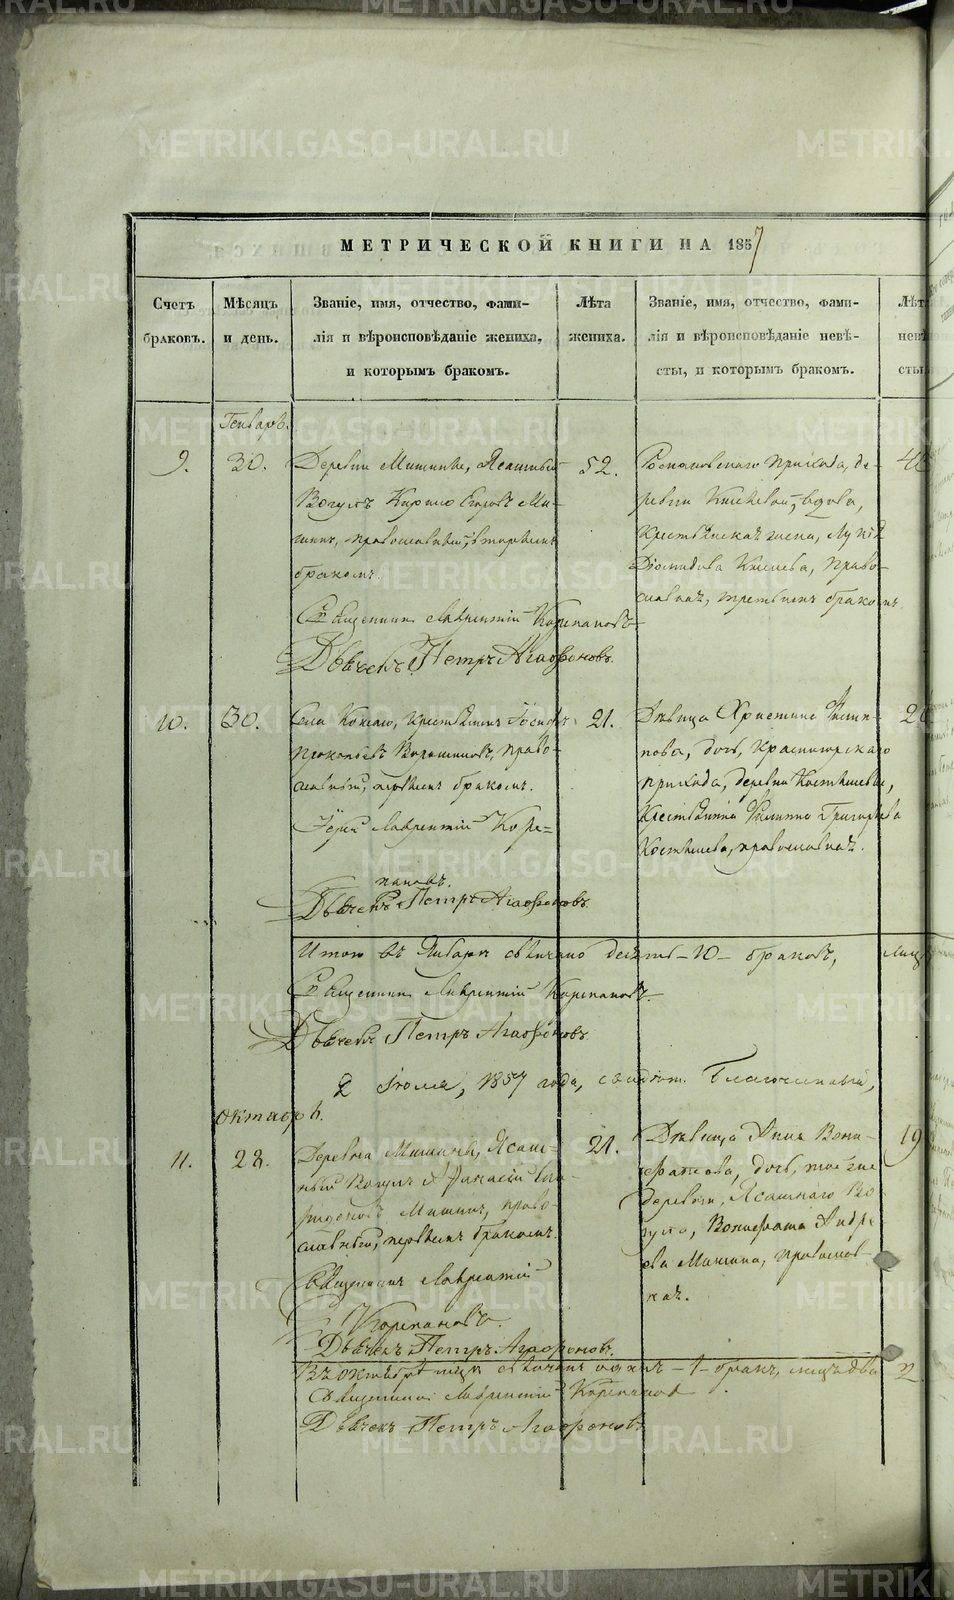 МЕТРИЧЕСКОЙ КНИГИ НА 1857
Счетъ
браковъ.
Мѣсяцъ
и день.
Званіе, имя, отчество, фами-
лія и вѣроисповѣданіе жениха,
и которымъ бракомъ.
Лѣта
жениха.
Званіе, имя, отчество, фами-
лія и вѣроисповѣданіе невѣ-
сты, и которымъ бракомъ.
Лѣт
нев
сты
Генварь.
9.
30.
Деревни Мишиной, Ясашный
Вогулъ Кирило Егоровъ Ми-
шинъ, православный, вторымъ
бракомъ.
Священникъ Лаврентій Корепановъ
Дьячекъ Петръ Агафоновъ.
52.
прихода, де-
ревни Киселевой, вдова,
Крестьянская жена,
Киселева, право-
славная, третьимъ бракомъ.
10.
30.
Села Крестьянинъ
Прокопьевъ Ворошиловъ, право-
славный, первымъ бракомъ.
Іерей Лаврентій Коре-
пановъ.
Дьячекъ Петръ Агафоновъ.
21.
Дѣвица Христина Филип-
пова, дочь, Красногорскаго
прихода, деревни Костылевы,
Крестьянина Филиппа Григорьева
Костылева, православная.
20
Итого въ Январѣ свѣнчано десять -10- браковъ,
лицъ
Священникъ Лаврентій Корепановъ.
Дьячекъ Петръ Агафоновъ.
2 Іюля, 1857 года, свидѣт. Благочинный,
Октябрь.
11.
28.
Деревни Мишины, Ясаш-
ный Вогулъ Афанасій Спи-
ридоновъ Мишинъ, право-
славный, первымъ бракомъ.
Священникъ Лаврентій
Корепановъ.
Дьячекъ Петръ Агафоновъ.
21.
Дѣвица Анна Вони-
фатова, дочь, той же
деревни, Ясашнаго Во-
гула, Вонифата Андре-
ева Мишина, православ-
ная.
19
Въ октябрѣ м-цѣ свѣнчанъ одинъ -1- бракъ, лицъ два 2
Священникъ Лаврентій Корепановъ
Дьячекъ Петръ Агафоновъ.
METRIKI.GASO-URAL.RU